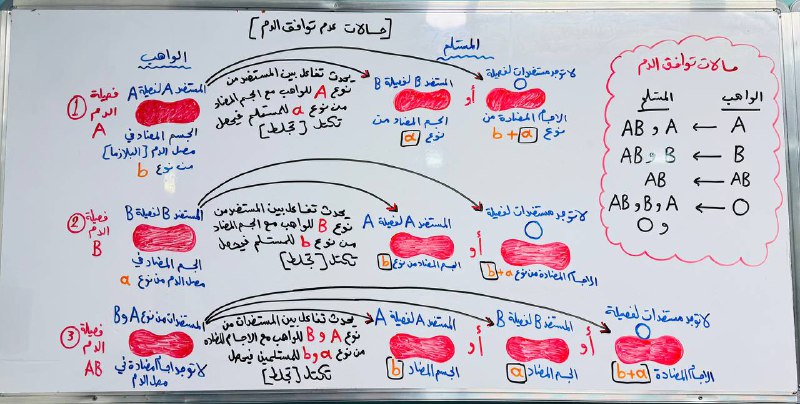 [حالات عدم توافق الدم]
الواهب
المستلم
① فصيلة
الدم
A
المستضد A لفصيلة A
الجسم المضاد في
مصل الدم [البلازما]
من نوع b
يحدث تفاعل بين المستضد من
نوع A للواهب مع الجسم المضاد
من نوع a للمستلم فيحصل
تكتل [تجلط]
المستضد B لفصيلة B
الجسم المضاد من
نوع a
أو
لا توجد مستضدات لفصيلة
O
الاجسام المضادة من
نوع b + a
② فصيلة
الدم
B
المستضد B لفصيلة B
الجسم المضاد في
مصل الدم من نوع a
يحدث تفاعل بين المستضد من
نوع B للواهب مع الجسم المضاد
من نوع b للمستلم فيحصل
تكتل [تجلط]
المستضد A لفصيلة A
الجسم المضاد من نوع b
أو
لا توجد مستضدات لفصيلة
O
الاجسام المضادة من نوع b + a
③ فصيلة
الدم
AB
المستضدات من نوع A و B
لا توجد اجسام مضادة في
مصل الدم
يحدث تفاعل بين المستضدات من
نوع A و B للواهب مع الاجسام المضادة
نوع a و b للمستلمين فيحصل
تكتل [تجلط]
المستضد A لفصيلة A
الجسم المضاد b
أو
المستضد B لفصيلة B
الجسم المضاد a
أو
لا توجد مستضدات لفصيلة
O
الاجسام المضادة b + a
حالات توافق الدم
الواهب المستلم
A ← A و AB
B ← B و AB
AB ← AB
O ← A و B و AB
و O